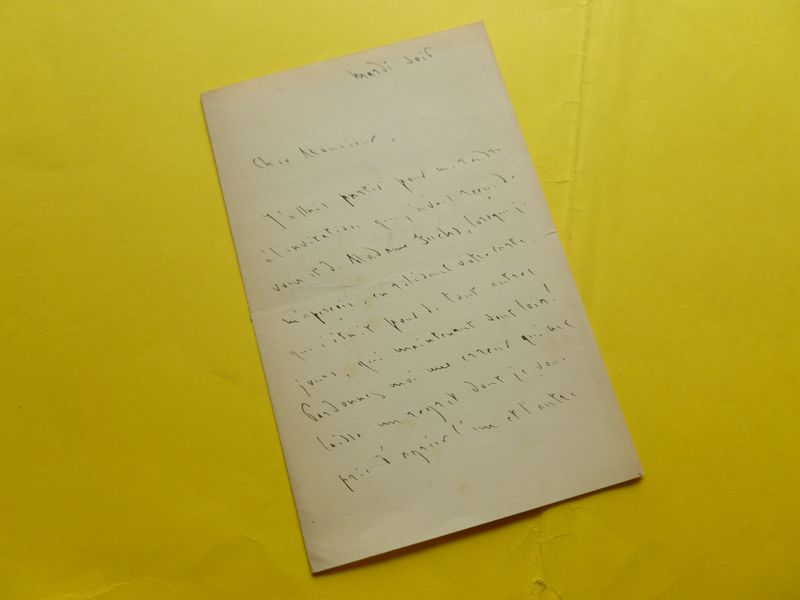 Mardi soir
Cher Monsieur,
J'allais partir pour me rendre
à l'invitation que j'avais reçu de
vous et de Madame lorsque je
m'aperçois, en relisant votre carte,
que c'était pour de tout autres
jours, qui maintenant sont loin!
Pardonnez moi une erreur qui me
laisse un regret dont je vous
prie d'agréer l'un et l'autre